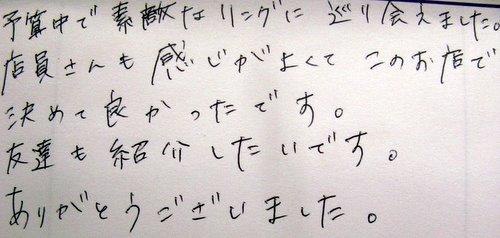 予算中で素敵なリングに巡り会えました。
店員さんも感じがよくてこのお店で
決めて良かったです。
友達も紹介したいです。
ありがとうございました。